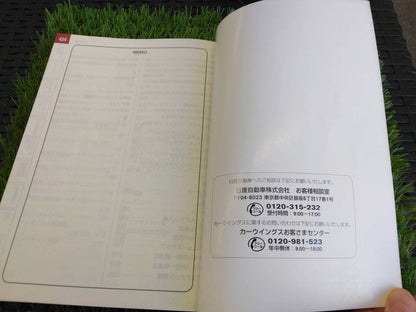 424
MEMO
日産自動車へのご相談は下記にお願いいたします。
日産自動車株式会社 お客様相談室
〒104-8023 東京都中央区銀座6丁目17番1号
0120-315-232
受付時間：9:00〜17:00
カーウイングスに関するお問い合わせは下記にお願いいたします。
カーウイングスお客さまセンター
0120-981-523
年中無休：9:00〜18:00